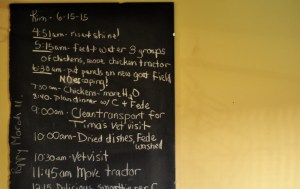 Kim - 6-15-15
4:51am - rise + shine!
5:15am - feed + water 3 groups
of chickens, move chicken tractor
6:30am - put panels on new goat field
NO escaping!
7:30am - Chickens - more H₂O
8:40 - Plan dinner w/ C + Fede
9:00am - Clean transport for
Tima's vet visit
10:00am - Dried dishes, Fede
washed
10:30am - Vet visit
11:45am Move tractor
12:15 Delicious C
Happy March 11